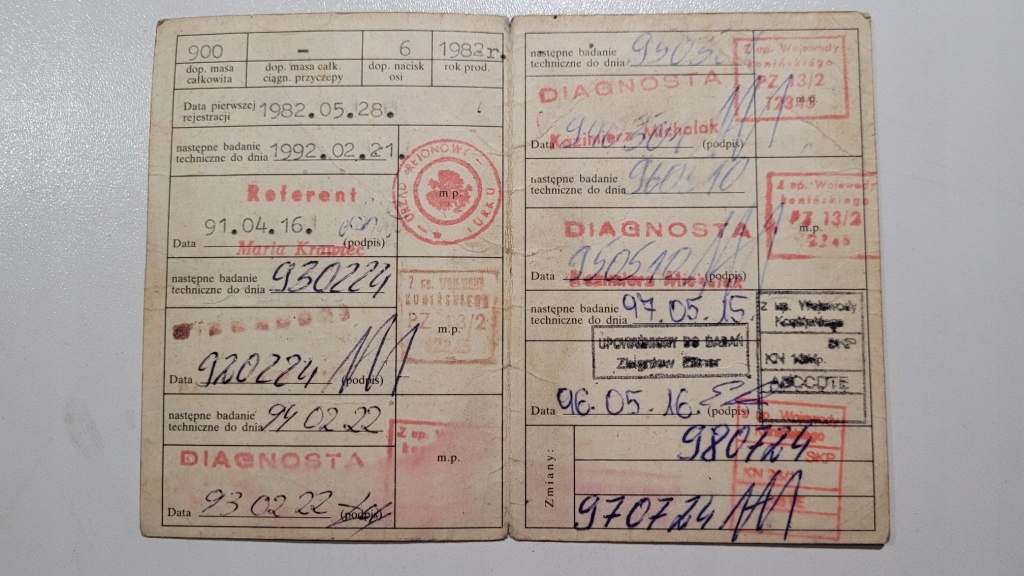 900 – 6 1982r.
dop. masa całkowita dop. masa całk. ciągn. przyczepy dop. nacisk osi rok prod.
Data pierwszej rejestracji 1982.05.28.
następne badanie techniczne do dnia 1992.02.21.
Referent
m.p.
91.04.16.
Data (podpis)
Maria Krawiec
następne badanie techniczne do dnia 930224
Z up. WOJEWODY
KONIŃSKIEGO
PZ 13/2
m.p.
Data 920224 (podpis)
następne badanie techniczne do dnia 94 02 22
Z up.
DIAGNOSTA
m.p.
Data 93 02 22 (podpis)
następne badanie techniczne do dnia
Z up. Wojewody
konińskiego
DIAGNOSTA
PZ 13/2
12345
m.p.
Kazimierz Michalak
Data (podpis)
następne badanie techniczne do dnia 960510
Z up. Wojewody
konińskiego
DIAGNOSTA
PZ 13/2
m.p.
Data 950510 (podpis)
Kazimierz Michalak
następne badanie techniczne do dnia 97.05.15.
Z up. Wojewody
UPOWAŻNIONY DO BADAŃ
Zbigniew
SKP
KN
m.p.
Data 96.05.16. (podpis)
Z up. Wojewody
Zmiany:
980724
SKP
KN
970724